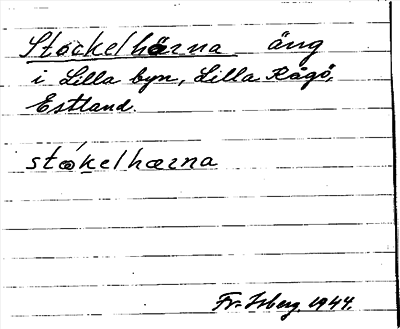 Stockelhärna äng
i Lilla byn, Lilla Rågö,
Estland.
stǿkelhærna
Fr. Isberg, 1944.